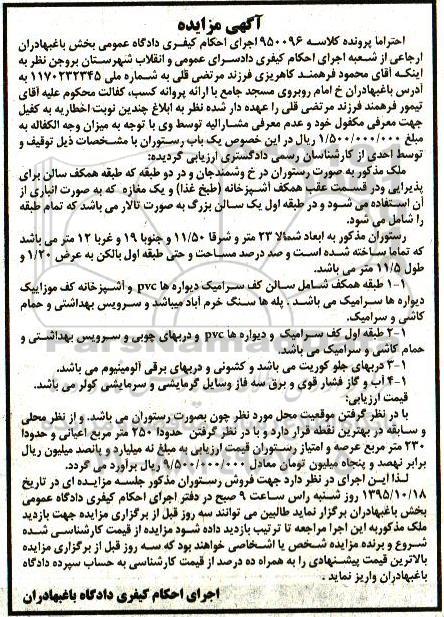 آگهی مزایده
احتراما پرونده کلاسه ۹۵۰۰۹۶ اجرای احکام کیفری دادگاه عمومی بخش باغبهادران
ارجاعی از شعبه اجرای احکام کیفری دادسرای عمومی و انقلاب شهرستان بروجن نظر به
اینکه آقای محمود فرهمند کاهریزی فرزند مرتضی قلی به شماره ملی ۱۱۷۰۲۳۲۳۴۵ به
آدرس باغبهادران خ امام روبروی مسجد جامع با ارائه پروانه کسب، کفالت محکوم علیه آقای
تیمور فرهمند فرزند مرتضی قلی را عهده دار شده نظر به ابلاغ چندین نوبت اخطاریه به کفیل
جهت معرفی مکفول خود و عدم معرفی مشارالیه توسط وی با توجه به میزان وجه الکفاله به
مبلغ ۱/۵۰۰/۰۰۰/۰۰۰ ریال در این خصوص یک باب رستوران با مشخصات ذیل توقیف و
توسط احدی از کارشناسان رسمی دادگستری ارزیابی گردیده:
ملک مذکور به صورت رستوران در خ وشمندجان و در دو طبقه که طبقه همکف سالن برای
پذیرایی ودر قسمت عقب همکف آشپزخانه (طبخ غذا) و یک مغازه که به صورت انباری از
آن استفاده می شود و در طبقه اول یک سالن بزرگ به صورت تالار می باشد که تمام طبقه
را شامل می شود.
رستوران مذکور به ابعاد شمالا ۲۳ متر و شرقا ۱۱/۵۰ و جنوبا ۱۹ و غربا ۱۲ متر می باشد
که تماما ساخته شده است و صد درصد مساحت و حتی طبقه اول بالکن به عرض ۱/۲۰ و
طول ۱۱/۵ متر می باشد.
۱-۱ طبقه همکف شامل سالن کف سرامیک دیواره ها pvc و آشپزخانه کف موزاییک
دیواره ها سرامیک می باشد. پله ها سنگ خرم آباد میباشد و سرویس بهداشتی و حمام
کاشی و سرامیک.
۱-۲ طبقه اول کف سرامیک و دیواره ها pvc و دربهای چوبی و سرویس بهداشتی و
حمام کاشی و سرامیک می باشد.
۱-۳ دربهای جلو کوریت می باشد و کشویی و دربهای برقی آلومینیوم می باشد.
۱-۴ آب و گاز فشار قوی و برق سه فاز وسایل گرمایشی و سرمایشی کولر می باشد.
قیمت ارزیابی:
با در نظر گرفتن موقعیت محل مورد نظر چون بصورت رستوران می باشد. و از نظر محلی
و سابقه در بهترین نقطه قرار دارد و با در نظر گرفتن حدودا ۲۵۰ متر مربع اعیانی و حدودا
۲۳۰ متر مربع عرصه و امتیاز رستوران قیمت ارزیابی به مبلغ نه میلیارد و پانصد میلیون ریال
برابر نهصد و پنجاه میلیون تومان معادل ۹/۵۰۰/۰۰۰/۰۰۰ ریال برآورد می گردد.
لذا این اجرای در نظر دارد جهت فروش رستوران مذکور جلسه مزایده ای در تاریخ
۱۳۹۵/۱۰/۱۸ روز شنبه راس ساعت ۹ صبح در دفتر اجرای احکام کیفری دادگاه عمومی
بخش باغبهادران برگزار نماید طالبین می توانند سه روز قبل از برگزاری مزایده جهت بازدید
ملک مذکوربه این اجرا مراجعه تا ترتیب بازدید داده شود مزایده از قیمت کارشناسی شده
شروع و برنده مزایده شخص یا اشخاصی خواهند بود که سه روز قبل از برگزاری مزایده
بالاترین قیمت پیشنهادی را به همراه ده درصد از قیمت کارشناسی به حساب سپرده دادگاه
باغبهادران واریز نماید.
اجرای احکام کیفری دادگاه باغبهادران